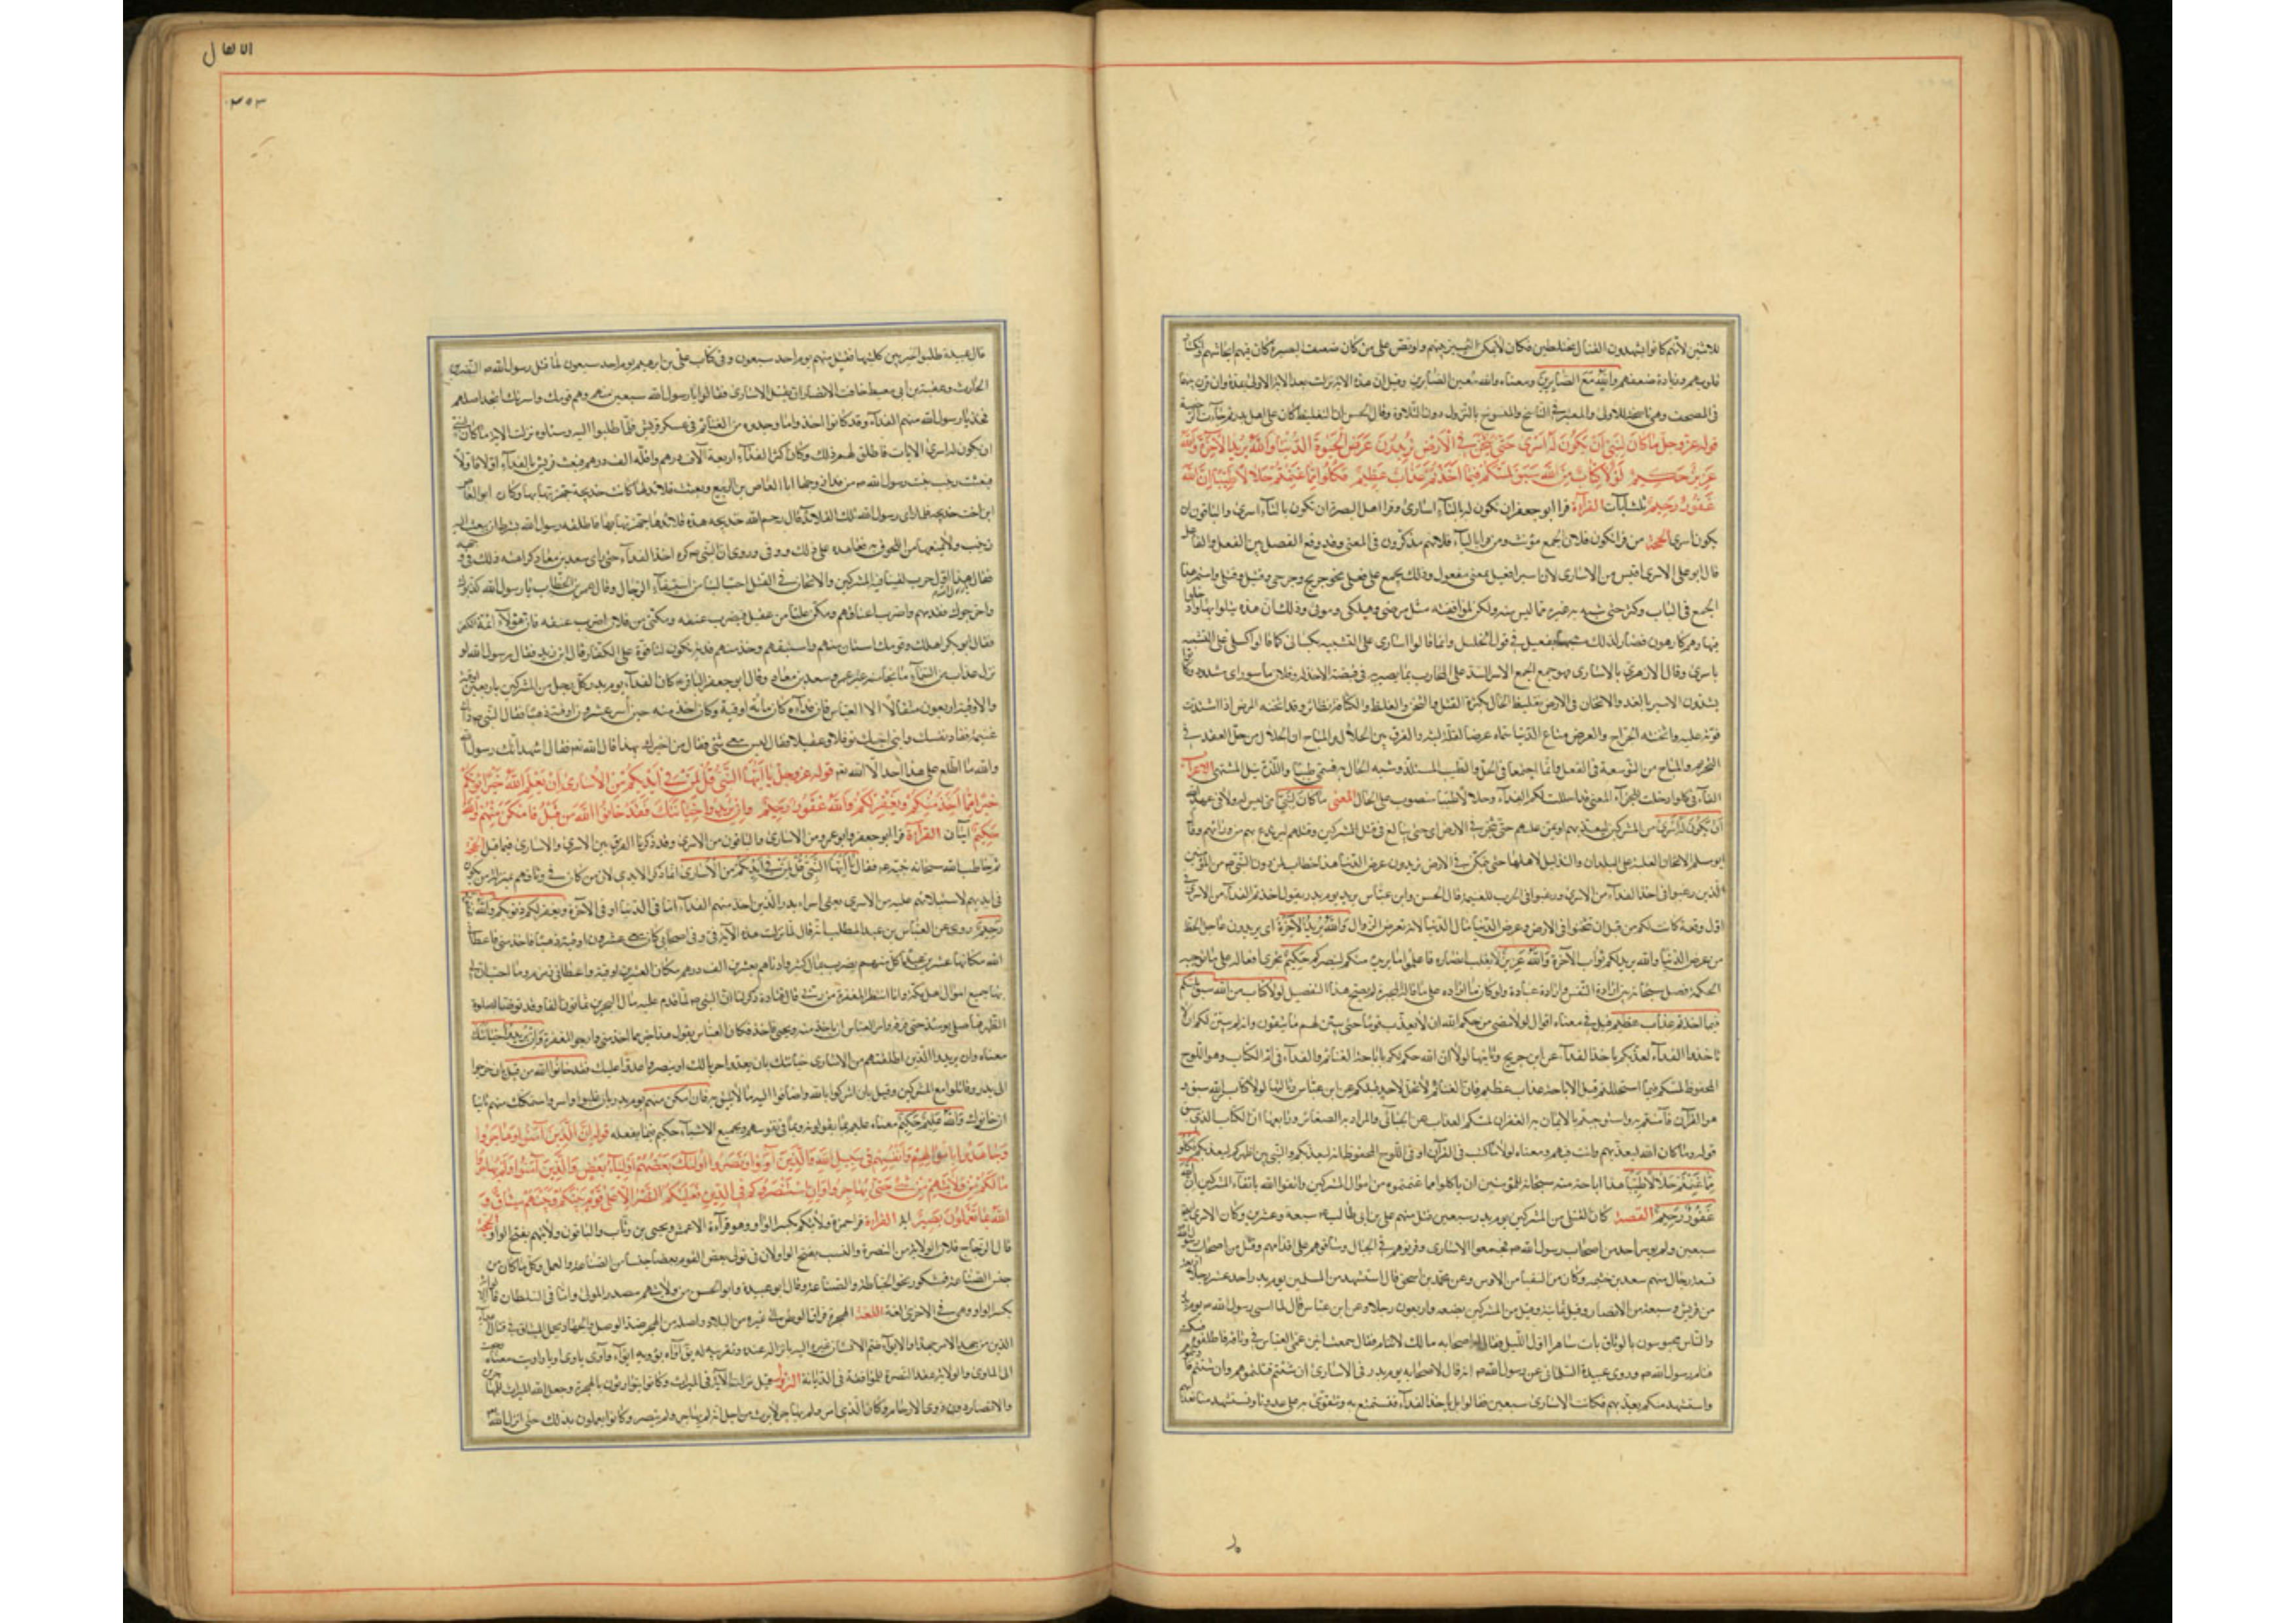 للاثنين لأنهم كانوا يشهدون القتال مختلطين فكان لا يمكن التمييز بينهم ولو نص على من كان ضعيف البصيرة كان فيهم ايحاشهم
قلوبهم وزيادة ضعفهم والله مع الصابرين ومعناه والله معين الصابرين وقيل ان هذه الآية نزلت بعد الآية الاولى بمدة وان قرن بينهما
في المصحف وهي ناسخة للاولى والمعتبر في الناسخ والمنسوخ بالنزول دون التلاوة وقال الحسن ان التغليظ كان على اهل بدر ثم جاءت الرخصة
قوله عز وجل ما كان لنبي ان يكون له اسرى حتى يثخن في الارض تريدون عرض الحيوة الدنيا والله يريد الآخرة والله
عزيز حكيم لولا كتاب من الله سبق لمسكم فيما اخذتم عذاب عظيم فكلوا مما غنمتم حلالا طيبا ان الله
غفور رحيم ثلث آيات القراءة قرا ابو جعفر ان تكون له بالتاء اسارى وقرا اهل البصرة ان تكون بالتاء اسرى والباقون ان
يكون اسرى الحجة من قرا تكون فلان الجمع مؤنث ومن قرا بالياء فلانهم مذكرون في المعنى وقد وقع الفصل بين الفعل والفاعل
قال ابو علي الاسرى اقيس من الاسارى لان اسيرا فعيل بمعنى مفعول وذلك يجمع على فعلى نحو جريح وجرحى وقتيل وقتلى
الجمع في الباب وكثر حتى شبه به غيره مما ليس منه ولكن لموافقته مثل مرضى وهلكى وموتى وذلك ان هذه
فيها وهم كارهون فصار لذلك مشبها بفعيل في قول الخليل وانما قالوا اسارى على التشبيه بكسالى كما قالوا كسلى على التشبيه
باسرى وقال الازهري الاسارى هو جمع الجمع
يشدون الاسير بالقد والاثخان في الارض تغليظ الحال بكثرة القتل والثخن والغلظ والكثافة نظائر وقد اثخنه المرض اذا اشتدت
قوته عليه واثخنته الجراح والعرض متاع الدنيا سماه عرضا لقلة لبثه والفرق بين الحلال والمباح ان الحلال من حل العقد في
التحريم والمباح من التوسعة في الفعل وانما اجتمعا في الحل والطيب المستلذ وشبه الحلال به فسمي طيبا واللذة نيل المشتهى الاعراب
الفاء في فكلوا دخلت للجزاء المعنى قد احللت لكم الفداء وحلالا طيبا منصوب على الحال المعنى ما كان لنبي اي ليس له ولا في عهد الله
ان يكون له اسرى من المشركين ليفديهم او يمن عليهم حتى يثخن في الارض اي حتى يبالغ في قتل المشركين وقتلهم ليرتدع بهم من ورائهم وقال
ابو مسلم الاثخان الغلبة على البلدان والتذليل لاهلها حتى يتمكن في الارض تريدون عرض الدنيا هذا خطاب لمن دون النبي ص من المؤمنين
الذين رغبوا في اخذ الفداء من الاسرى ورغبوا في الحرب للغنيمة قال الحسن وابن عباس يريد يوم بدر يقول اخذتم الفداء من الاسرى في
اول وقعة كانت لكم من قبل ان تثخنوا في الارض وعرض الدنيا مال الدنيا لانه بعرض الزوال والله يريد الآخرة اي يريدون عاجل الحظ
من عرض الدنيا والله يريد لكم ثواب الآخرة والله عزيز لا يغلب انصاره فاعملوا ما يريده منكم لينصركم حكيم يجري افعاله على ما توجبه
الحكمة فصل سبحانه بين ارادة النفس وارادة عباده ولو كان ما ارادوه على ما قاله المجبرة لم يصح هذا التفصيل لولا كتاب من الله سبق لمسكم
فيما اخذتم عذاب عظيم قيل في معناه اقوال لولا ما مضى من حكم الله ان لا يعذب قوما حتى يبين لهم ما يتقون وانه لم يبين لكم ان لا
تاخذوا الفداء لعذبكم باخذ الفداء عن ابن جريج وثانيها لولا ان الله حكم لكم باباحة الغنائم والفداء في ام الكتاب وهو اللوح
المحفوظ لمسكم فيما استحللتم قبل الاباحة عذاب عظيم فان الغنائم لم تحل لاحد قبلكم عن ابن عباس وثالثها لولا كتاب من الله سبق و
هو القرآن فآمنتم به واستوجبتم بالايمان به الغفران لمسكم العذاب عن الجبائي والمراد به الصغائر ورابعها ان الكتاب الذي سبق
قوله وما كان الله ليعذبهم وانت فيهم ومعناه لولا ما كتب في القرآن او في اللوح المحفوظ انه لا يعذبكم والنبي بين اظهركم لعذبكم فكلوا
مما غنمتم حلالا طيبا هذا اباحة منه سبحانه للمؤمنين ان ياكلوا مما غنموه من اموال المشركين واتقوا الله باتقاء المشركين ان الله
غفور رحيم القصة كان القتلى من المشركين يوم بدر سبعين قتل منهم علي بن ابي طالب سبعة وعشرين وكان الاسرى ايضا
سبعين ولم يوسر احد من اصحاب رسول الله ص فجمعوا الاسارى وقرنوهم في الحبال وساقوهم على اقدامهم وقتل من اصحاب رسول الله
تسعة رجال منهم سعد بن خيثمة وكان من النقباء من الاوس وعن محمد بن اسحق قال استشهد من المسلمين يوم بدر احد عشر رجلا اربعة
من قريش وسبعة من الانصار وقيل ثمانية وقتل من المشركين بضعة واربعون رجلا وعن ابن عباس قال لما امسى رسول الله ص يوم بدر
والناس محبوسون بالوثاق بات ساهرا اول الليل فقال له اصحابه ما لك لا تنام فقال سمعت انين عمي العباس في وثاقه فاطلقوه فسكت
فنام رسول الله ص وروى عبيدة السلماني عن رسول الله ص انه قال لاصحابه يوم بدر في الاسارى ان شئتم قتلتموهم وان شئتم فاديتموهم
واستشهد منكم بعدتهم فكانت الاسارى سبعين فقالوا بل ناخذ الفداء فنستمتع به ونتقوى به على عدونا ويستشهد منا بعدتهم
الانفال
٣٥٣
قال عبيدة طلبوا الخيرتين كلتيهما فقتل منهم يوم احد سبعون وفي كتاب علي بن ابرهيم يوم احد سبعون لما قتل رسول الله ص النضر بن
الحارث وعقبة بن ابي معيط خافت الانصار ان يقتل الاسارى فقالوا يا رسول الله قتلنا سبعين وهم قومك واسرتك اتجد اصلهم
فخذ يا رسول الله منهم الفداء وقد كانوا اخذوا ما وجدوه من الغنائم في عسكر قريش فلما طلبوا اليه وسالوه نزلت الآية ما كان لنبي
ان يكون له اسرى الآيات فاطلق لهم ذلك وكان اكثر الفداء اربعة آلاف درهم واقله الف درهم فبعثت قريش بالفداء اولا فاولا
فبعثت زينب بنت رسول الله ص من فداء زوجها ابا العاص بن الربيع وبعثت قلائد لها كانت خديجة جهزتها بها وكان ابو العاص
ابن اخت خديجة فلما راى رسول الله تلك القلائد قال رحم الله خديجة هذه قلائد هي جهزتها بها فاطلقه رسول الله بشرط ان يبعث اليه
زينب ولا يمنعها من اللحوق به فعاهده على ذلك ووفى وروي ان النبي ص كره اخذ الفداء حتى راى سعد بن معاذ كراهية ذلك في وجهه
فقال يا رسول الله هذا اول حرب لقينا فيه المشركين والاثخان في القتل احب الينا من استبقاء الرجال وقال عمر بن الخطاب يا رسول الله كذبوك
واخرجوك فقدمهم واضرب اعناقهم ومكن عليا من عقيل فيضرب عنقه ومكني من فلان اضرب عنقه فان هؤلاء ائمة الكفر
فقال ابو بكر اهلك وقومك استان بهم واستبقهم وخذ منهم فدية تكون لنا قوة على الكفار قال ابن زيد فقال رسول الله لو
نزل عذاب من السماء ما نجا منه غير عمر وسعد بن معاذ وقال ابو جعفر الباقر ع كان الفداء يوم بدر كل رجل من المشركين باربعين اوقية
والاوقية اربعون مثقالا الا العباس فان فداءه كان مائة اوقية وكان اخذ منه حين اسر عشرون اوقية ذهبا فقال النبي ص ذلك
غنيمة ففاد نفسك وابني اخيك نوفلا وعقيلا فقال ليس معي شئ فقال
من اخبرك بهذا قال الله تع فقال اشهد انك رسول الله
والله ما اطلع على هذا احد الا الله تع قوله عز وجل يا ايها النبي قل لمن في ايديكم من الاسارى ان يعلم الله خيرا يؤتكم
خيرا مما اخذ منكم ويغفر لكم والله غفور رحيم وان يريدوا خيانتك فقد خانوا الله من قبل فامكن منهم والله
حكيم آيتان القراءة قرا ابو جعفر وابو عمرو من الاسارى والباقون من الاسرى وقد ذكرنا الفرق بين الاسرى والاسارى فيما قبل
ثم خاطب الله سبحانه نبيه ص فقال يا ايها النبي قل لمن في ايديكم من الاسارى انما ذكر الايدي لان من كان في وثاقهم بمنزلة من يكون
في ايديهم لاستيلائهم عليه من الاسرى يعني اسراء بدر الذين اخذ منهم الفداء اما في الدنيا او في الآخرة ويغفر لكم ذنوبكم والله
رحيم روي عن العباس بن عبد المطلب انه قال نزلت هذه الآية في وفي اصحابي كان معي عشرون اوقية ذهبا فاخذت مني فاعطاني
الله مكانها عشرين عبدا كل منهم يضرب بمال كثير وادناهم يضرب بعشرين الف درهم مكان العشرين اوقية واعطاني زمزم وما احب ان لي
بها جميع اموال اهل مكة وانا انتظر المغفرة من ربي قال قتادة ذكر لنا ان النبي ص لما قدم عليه مال البحرين ثمانون الفا وقد توضا لصلوة
الظهر فما صلى يومئذ حتى فرقه وامر العباس ان ياخذ منه ويحثي فاخذ فكان العباس يقول هذا خير مما اخذ مني وارجو المغفرة وان يريدوا خيانتك
معناه وان يريد الذين اطلقتهم من الاسارى خيانتك بان يعدوا حربا لك او ينصروا عدوا عليك فقد خانوا الله من قبل بان خرجوا
الى بدر وقاتلوا مع المشركين وقيل بان اشركوا بالله واضافوا اليه ما لا يليق به فامكن منهم يوم بدر بان غلبوا واسروا وسيمكنك منهم ثانيا
ان خانوك والله عليم حكيم معناه عليم بما يقولونه وبما في نفوسهم وبجميع الاشياء حكيم فيما يفعله قوله ان الذين آمنوا وهاجروا
وجاهدوا باموالهم وانفسهم في سبيل الله والذين آووا ونصروا اولئك بعضهم اولياء بعض والذين آمنوا ولم يهاجروا
ما لكم من ولايتهم من شئ حتى يهاجروا وان استنصروكم في الدين فعليكم النصر الا على قوم بينكم وبينهم ميثاق و
الله بما تعملون بصير آية القراءة قرا حمزة ولايتهم بكسر الواو وهو قراءة الاعمش ويحيى بن وثاب والباقون ولايتهم بفتح الواو الحجة
قال الزجاج
من النصرة والنسب بفتح الواو لان في تولي بعض القوم بعضا جنسا من الصناعة والعمل وكل ما كان من
جنس الصناعة فمكسور نحو الخياطة والصناعة وقال ابو عبيدة وابو الحسن من ولايتهم مصدر المولى واما في السلطان فالولاية
بكسر الواو وهي في الاخرى لغة اللغة الهجرة فراق الوطن الى غيره من البلاد واصله من الهجر ضد الوصل
الى الماوى والولاية عقد النصرة للموافقة في الديانة النزول قيل نزلت الآية في الميراث وكانوا يتوارثون بالهجرة وجعل الله الميراث للمهاجرين
والانصار دون ذوي الارحام وكان الذي آمن ولم يهاجر لا يرث من اجل انه لم يهاجر ولم ينصر وكانوا يعملون بذلك حتى انزل الله